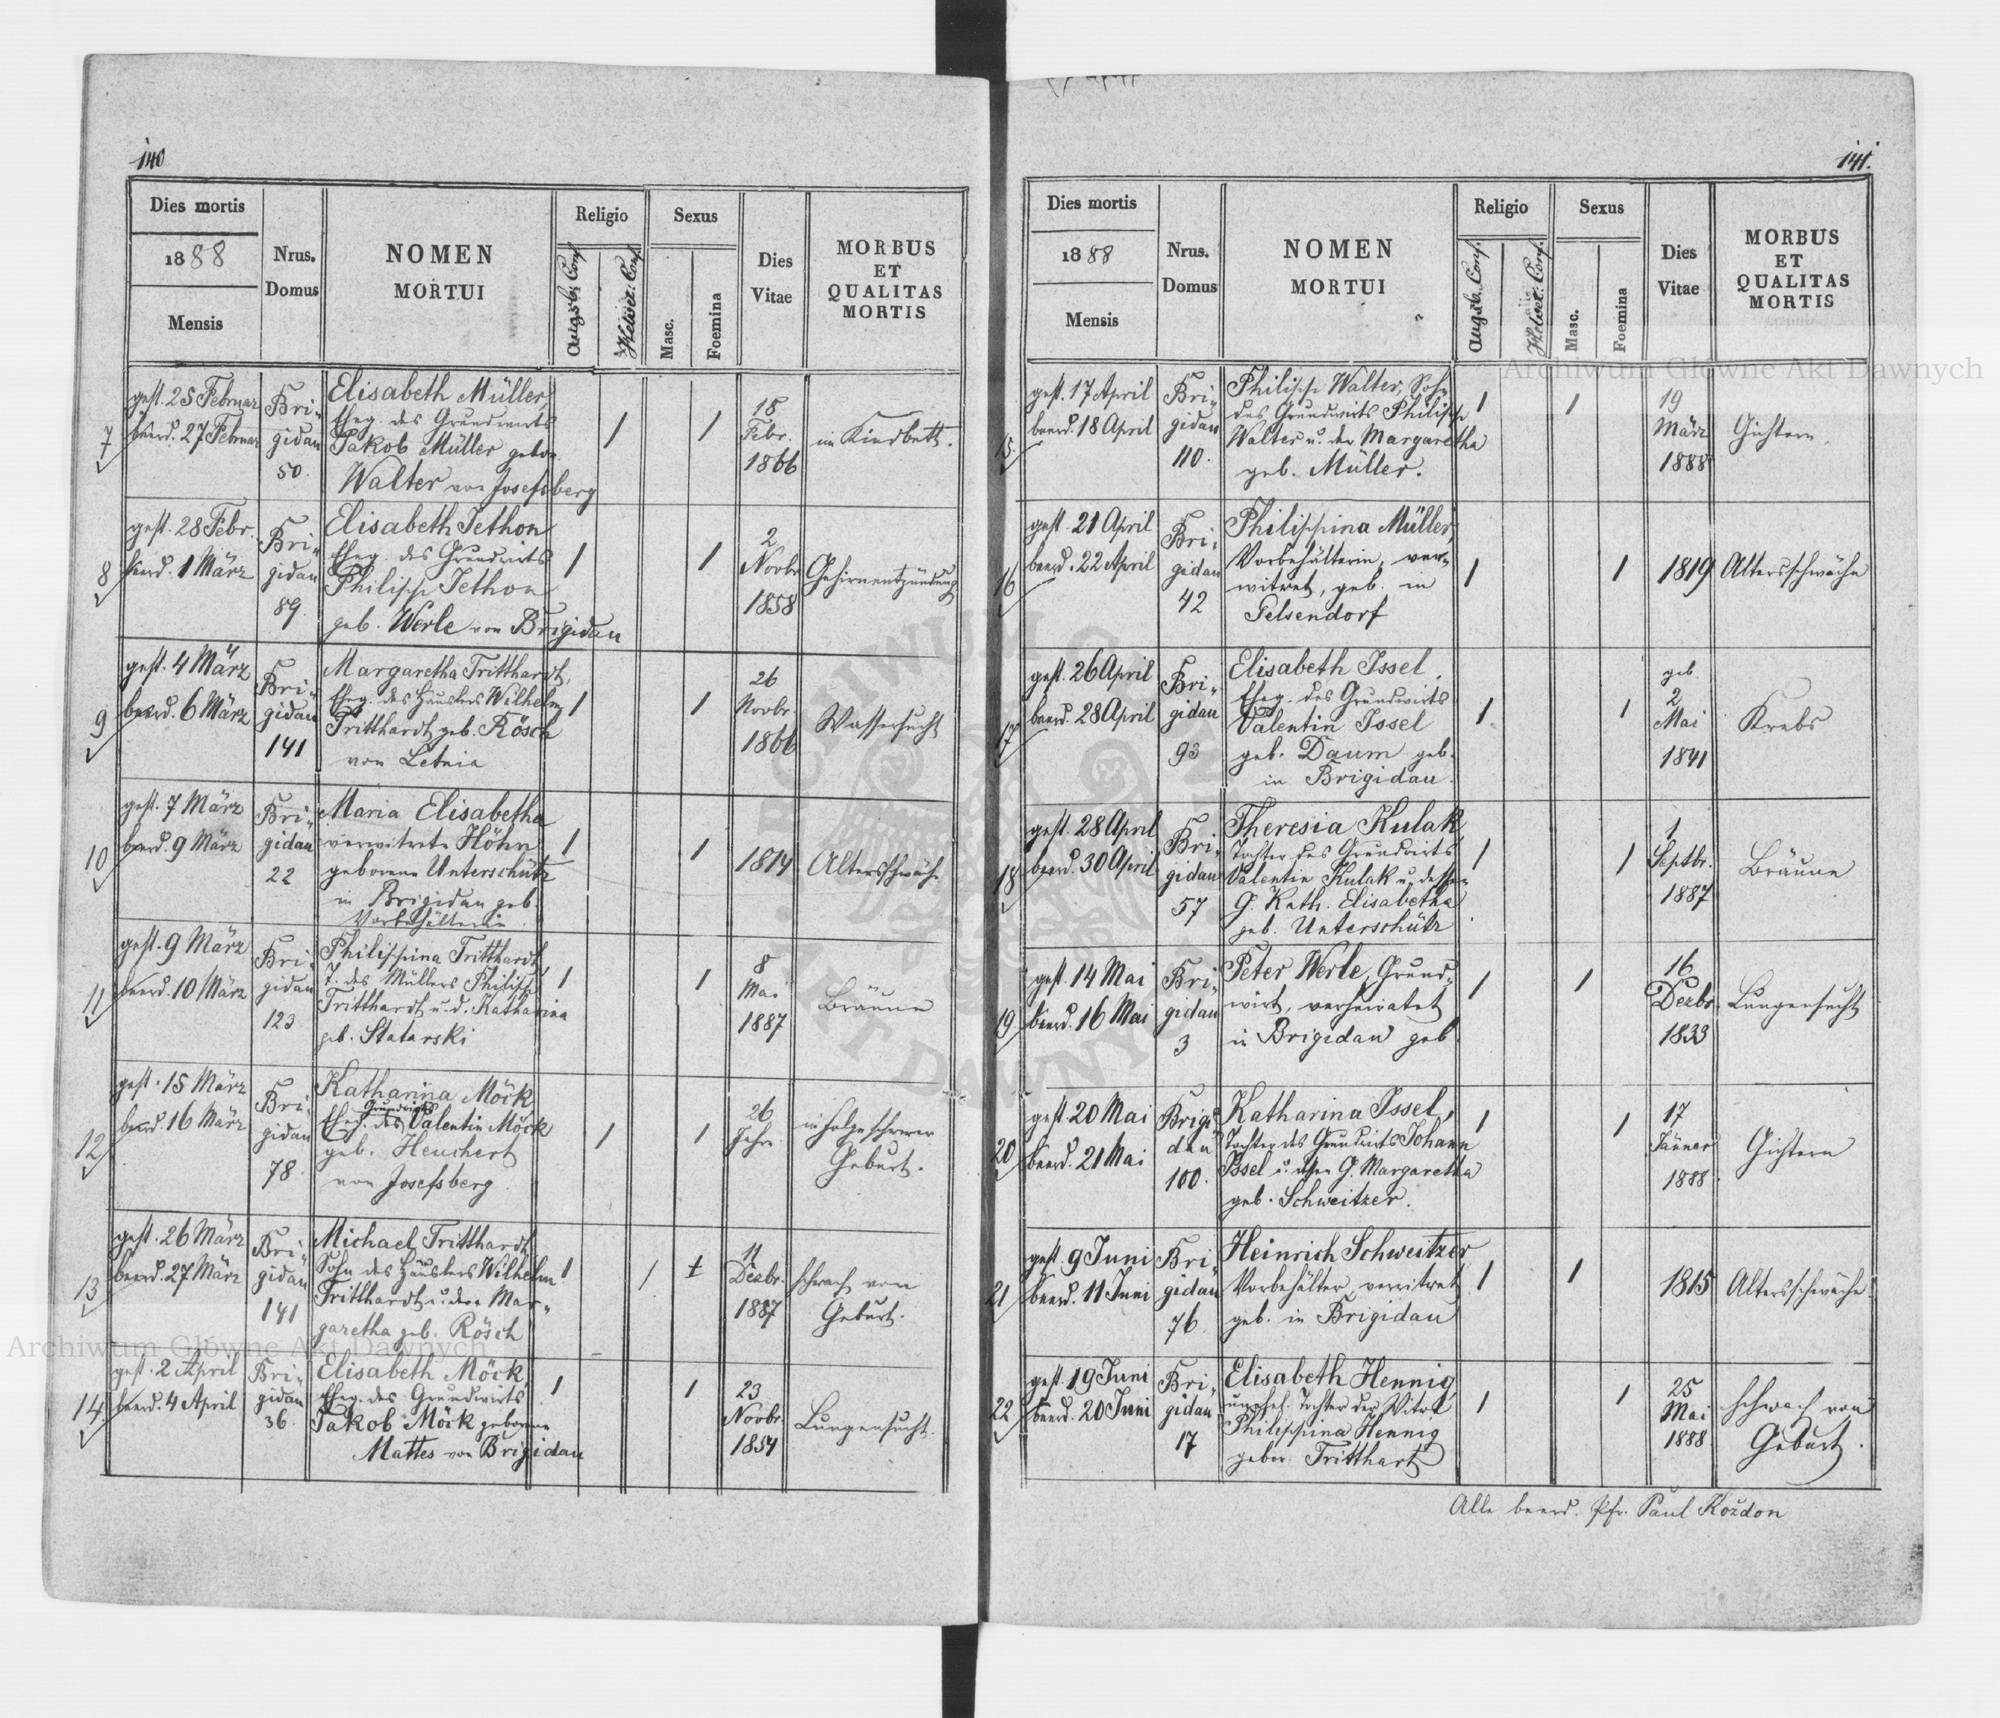 140
Dies mortis
1888
Mensis
Nrus. Domus
NOMEN
MORTUI
Religio
Augsb. Conf.
Helvet. Conf.
Sexus
Masc.
Foemina
Dies Vitae
MORBUS
ET
QUALITAS
MORTIS
7
gest. 25 Februar
beerd. 27 Februar
Bri-
gidau
50.
Elisabeth Müller,
Eheg. des Grundwirts
Jakob Müller gebor.
Walter von Josefsberg
1
1
18
Febr.
1866
im Kindbett.
8
gest. 28 Febr.
beerd. 1 März
Bri-
gidau
89.
Elisabeth Jethon
Eheg. des Grundwirts
Philipp Jethon
geb. Werle von Brigidau
1
1
2
Novbr
1858
Gehirnentzündung
9
gest. 4 März
beerd. 6 März
Bri-
gidau
141
Margaretha Tritthardt,
Eheg. des Häuslers Wilhelm
Tritthardt geb. Rösch
von Letnia
1
1
26
Novbr.
1866
Wassersucht
10
gest. 7 März
beerd. 9 März
Bri-
gidau
22
Maria Elisabetha
verwitwete Höhn
geborene Unterschütz
in Brigidau geb.
Vorbehälterin
1
1
1814
Altersschwäche
11
gest. 9 März
beerd. 10 März
Bri-
gidau
123
Philippina Tritthardt
T. des Müllers Philipp
Tritthardt u. d. Katharina
geb. Statarski
1
1
8
Mai
1887
Bräune
12
gest. 15 März
beerd. 16 März
Bri-
gidau
78.
Katharina Möck
Grundwirts
Eheg. des Valentin Möck
geb. Heuchert
von Josefsberg
1
1
26
Jahre
in Folge schwerer
Geburt.
13
gest. 26 März
beerd. 27 März
Bri-
gidau
141
Michael Tritthardt
Sohn des Häuslers Wilhelm
Tritthardt u. der Mar-
garetha geb. Rösch
1
1
11
Dezbr.
1887
schwach von
Geburt.
14
gest. 2 April
beerd. 4 April
Bri-
gidau
36.
Elisabeth Möck,
Eheg. des Grundwirts
Jakob Möck geborene
Mattes von Brigidau
1
1
23
Novbr
1854
Lungensucht.
141.
Dies mortis
1888
Mensis
Nrus. Domus
NOMEN
MORTUI
Religio
Augsb. Conf.
Helvet. Conf.
Sexus
Masc.
Foemina
Dies Vitae
MORBUS
ET
QUALITAS
MORTIS
15
gest. 17 April
beerd. 18 April
Bri-
gidau
110.
Philipp Walter, Sohn
des Grundwirts Philipp
Walter u. der Margaretha
geb. Müller.
1
1
19
März
1888
Gichtern.
16
gest. 21 April
beerd. 22 April
Bri-
gidau
42
Philippina Müller,
Vorbehälterin, ver-
witwet, geb. in
Gelsendorf
1
1
1819
Altersschwäche
17
gest. 26 April
beerd. 28 April
Bri-
gidau
93
Elisabeth Issel,
Eheg. des Grundwirts
Valentin Issel
geb. Daum geb.
in Brigidau.
1
1
geb
2
Mai
1841
Krebs
18
gest. 28 April
beerd. 30 April
Bri-
gidau
57
Theresia Kulak
Tochter des Grundwirts
Valentin Kulak u. dessen
G. Kath. Elisabetha
geb. Unterschütz
1
1
1
Septbr.
1887
Bräune
19
gest. 14 Mai
beerd. 16 Mai
Bri-
gidau
3
Peter Werle, Grund-
wirt, verheiratet
in Brigidau geb.
1
1
16
Dezbr
1833
Lungensucht
20
gest. 20 Mai
beerd. 21 Mai
Brigi-
dau
100.
Katharina Issel,
Tochter des Grundwirts Johann
Issel u. dessen G. Margaretha
geb. Schweitzer.
1
1
17
Jänner
1888
Gichtern
21
gest. 9 Juni
beerd. 11 Juni
Bri-
gidau
76
Heinrich Schweitzer
Vorbehälter, verwitwet
geb. in Brigidau
1
1
1815
Altersschwäche.
22
gest. 19 Juni
beerd. 20 Juni
Bri-
gidau
17
Elisabeth Hennig
unehel. Tochter der Witwe
Philippina Hennig
gebor. Tritthart
1
1
25
Mai
1888
schwach von
Geburt.
Alle beerd. Pfr. Paul Kożdon
Archiwum Główne Akt Dawnych
Archiwum Główne Akt Dawnych